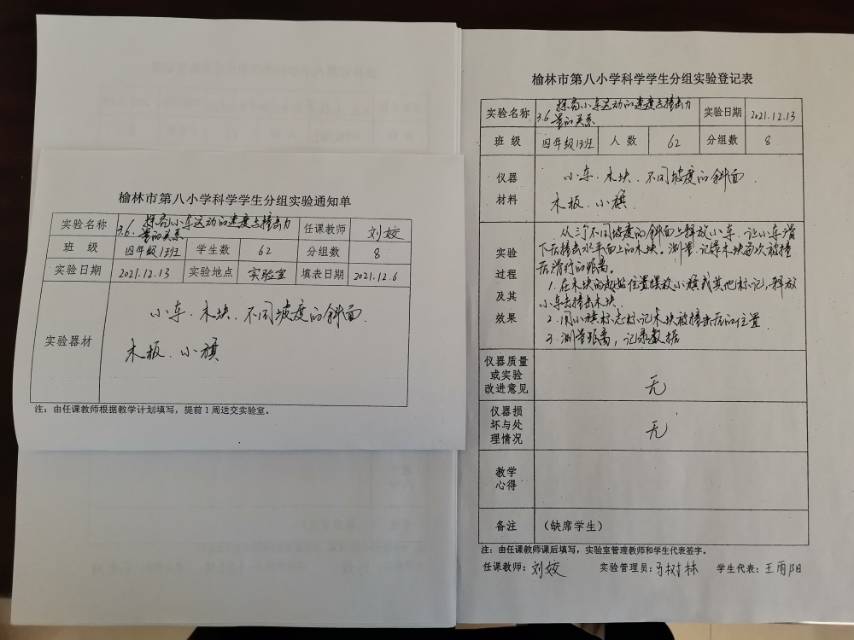 榆林市第八小学科学学生分组实验通知单
实验名称 3.6. 探究小车运动的速度与撞击力 任课教师 刘姣
量的关系
班 级 四年级13班 学生数 62 分组数 8
实验日期 2021.12.13 实验地点 实验室 填表日期 2021.12.6
小车、木块、不同坡度的斜面
实验器材
木板、小旗
注：由任课教师根据教学计划填写，提前1周送交实验室。
榆林市第八小学科学学生分组实验登记表
实验名称 3.6 探究小车运动的速度与撞击力 实验日期 2021.12.13
量的关系
班 级 四年级13班 人 数 62 分组数 8
仪器 小车、木块、不同坡度的斜面
材料 木板、小旗
从三个不同坡度的斜面上释放小车，让小车滑
实验 下后撞击水平面上的木块，测量、记录木块每次被撞
过程 后滑行的距离。
及其 1.在木块的起始位置摆放小旗或其他标记，释放
小车去撞击木块
效果 2.用小旗标志标记木块被撞击后的位置
3.测量距离，记录数据
仪器质量
或实验 无
改进意见
仪器损
坏与处 无
理情况
教学
心得
备注 （缺席学生）
注：由任课教师课后填写，实验室管理教师和学生代表签字。
任课教师：刘姣 实验管理员： 树林 学生代表：王雨阳